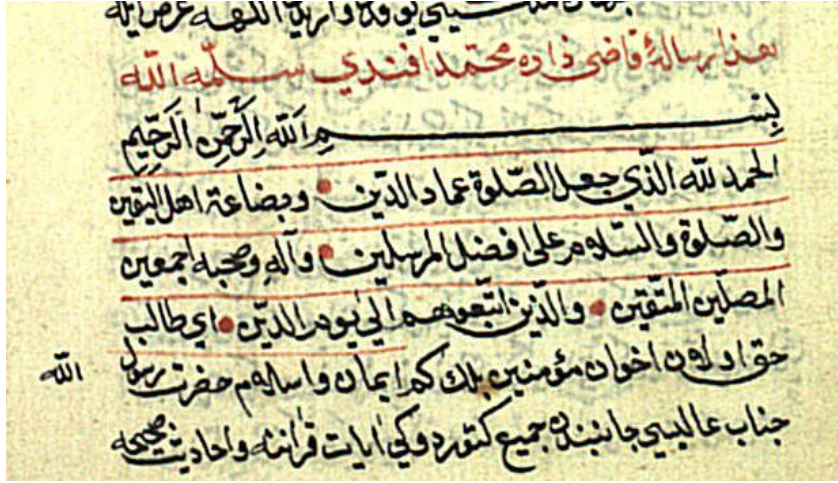 هذا رسالۀ قاضى زاده محمد افندي سلّمه الله
بِسْمِ اللهِ الرَّحْمٰنِ الرَّحِيمِ
الحمد لله الّذي جعل الصّلوة عماد الدّين وبضاعة اهل اليقين
والصّلوة والسّلام على افضل المرسلين وآله وصحبه اجمعين
المصلّين المتّقين والّذين اتّبعوهم الي يوم الدّين اي طالب
حق اولان اخوان مؤمنين بلك كم ايمان واسلام حضرت رسول الله
جناب عاليسي جانبنده جميع كتوردوكي ايات قرانيه واحاديث صحيحه